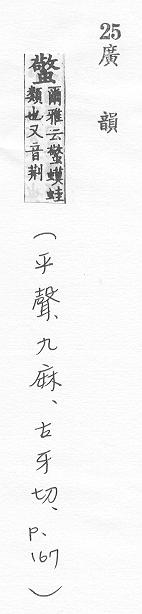 25 廣韻
蟼
爾雅云蟼蟆蛙
類也又音荆
(平聲、九麻、古牙切、P.167)